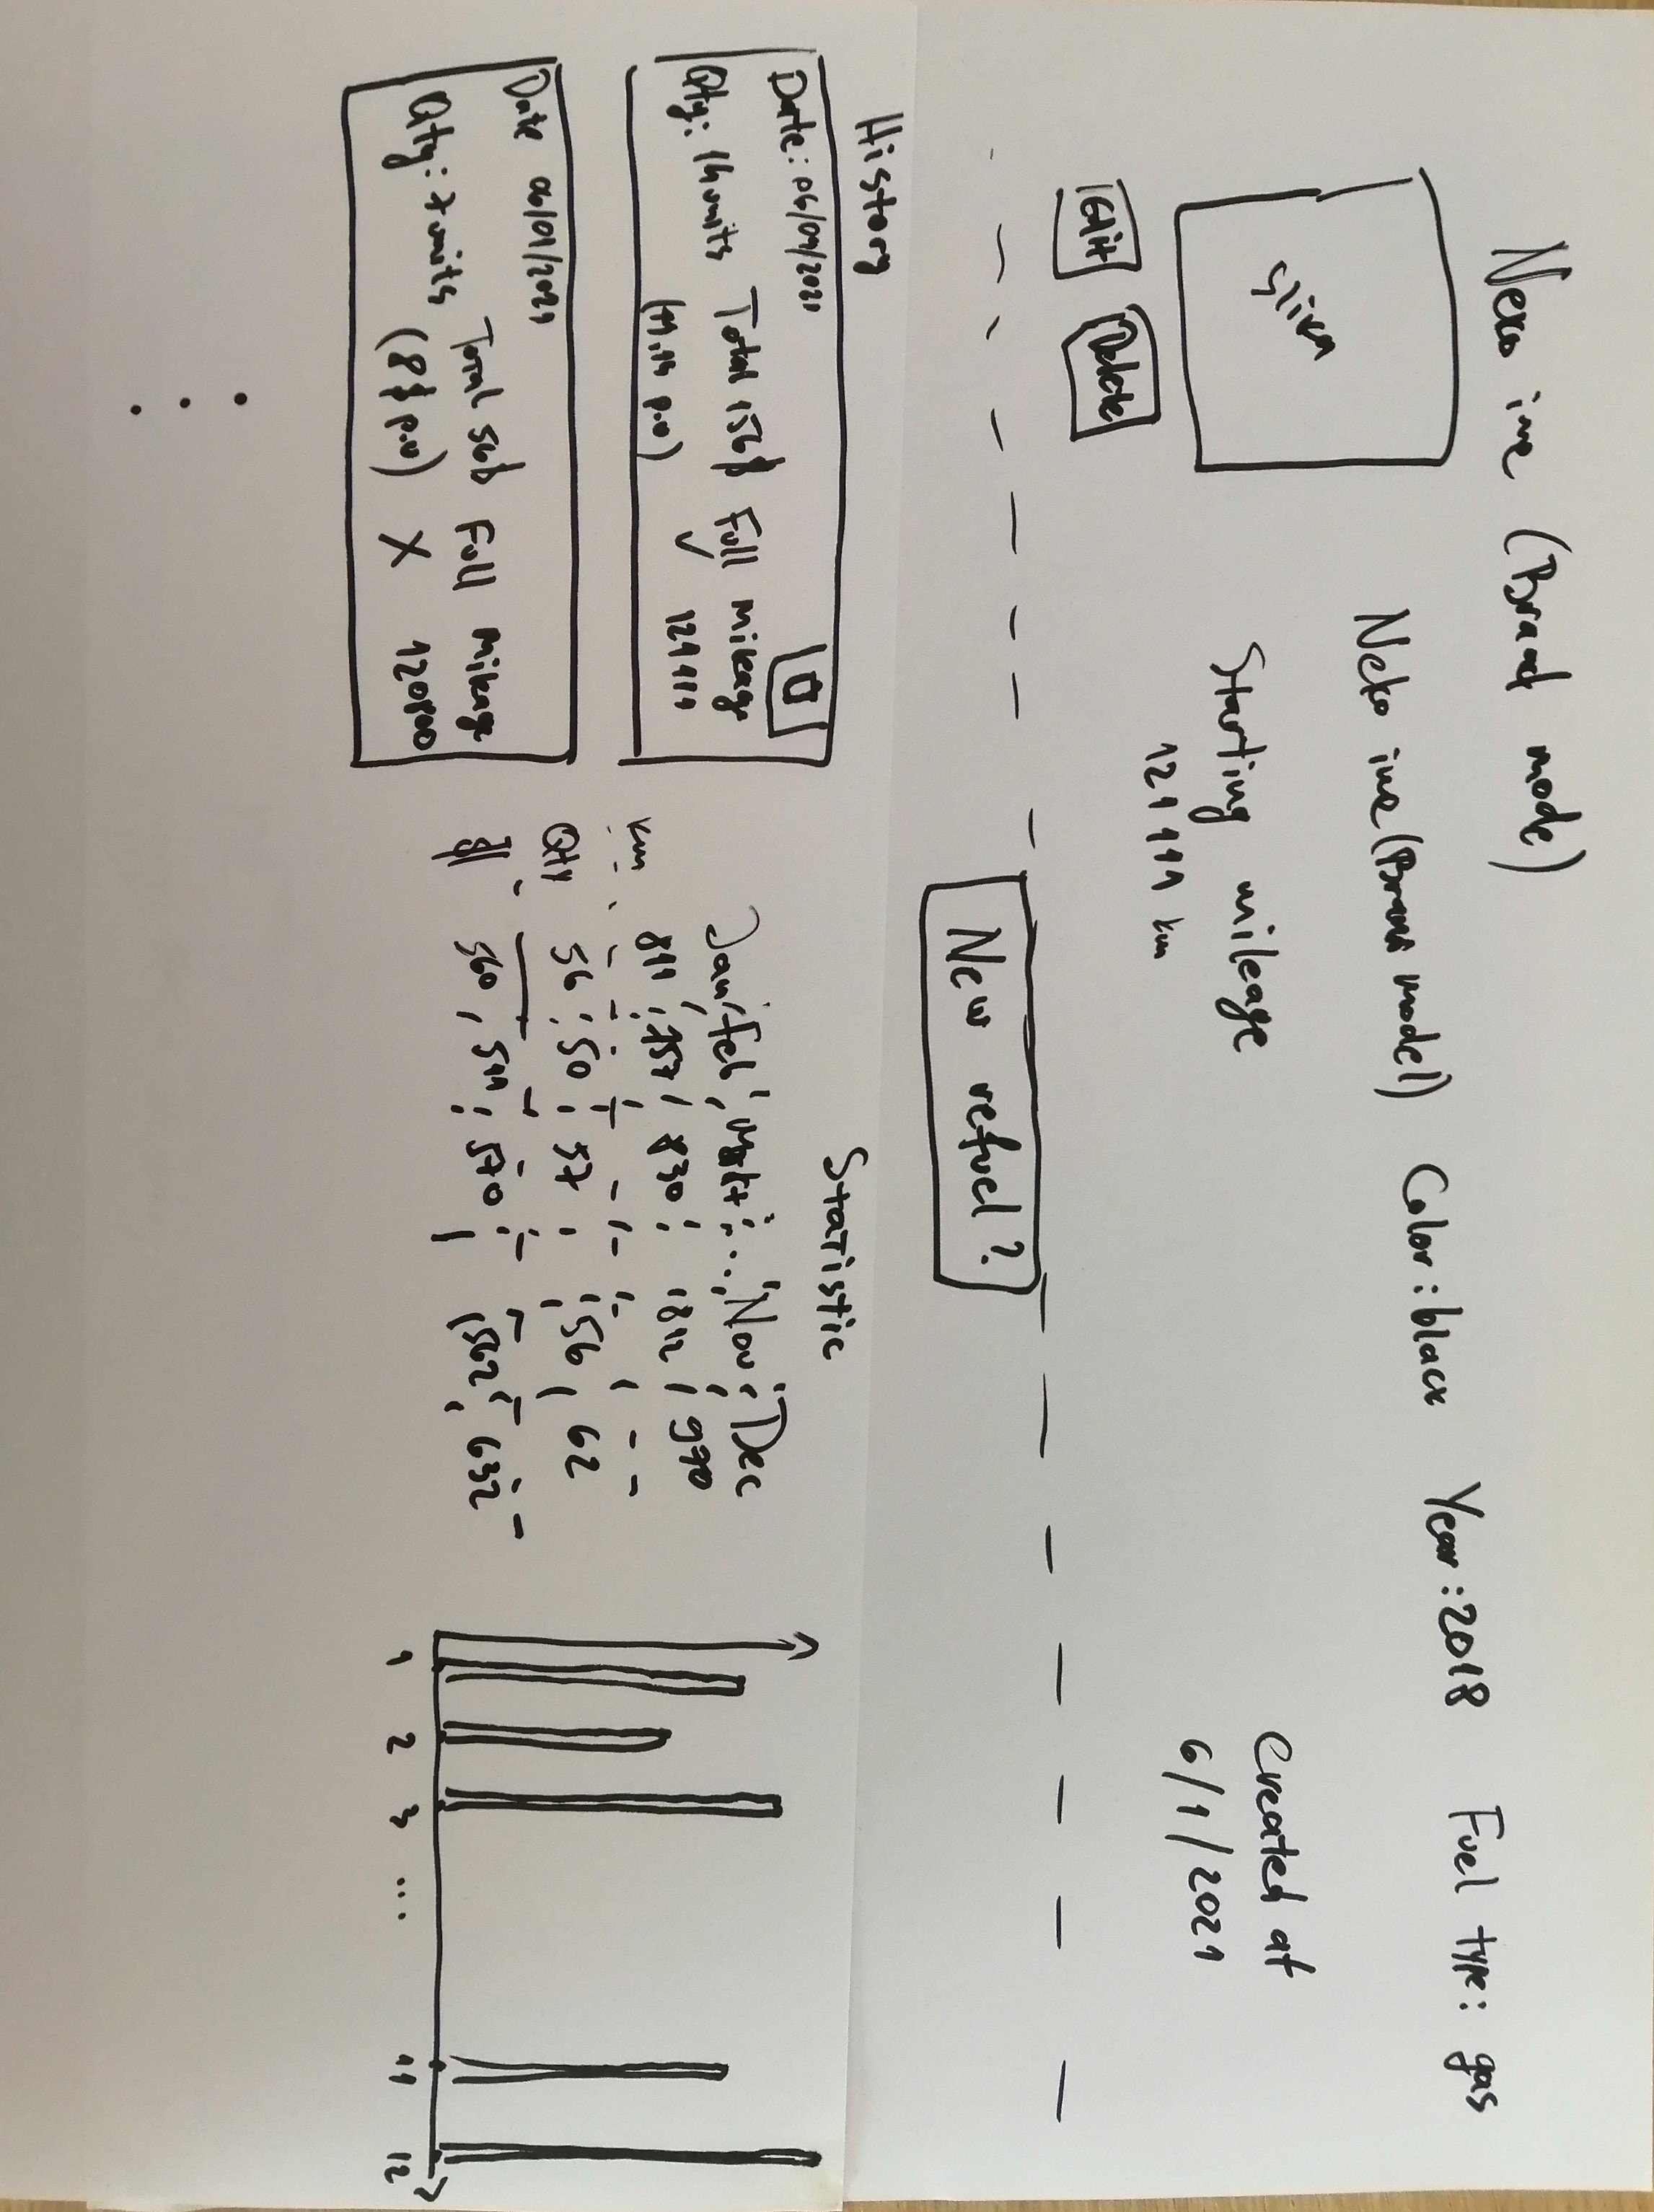 Neko ime (Brand mode)
Neko ime (Brand model) Color: black Year: 2018 Fuel type: gas
slika
Starting mileage
121 111 km
Created at
6/1/2021
Edit Delete
New refuel?
History
Date: 06/01/2021
Qty: 14 units Total 156$ Full Mileage
(11.14 p.u) ✓ 121111
Date 06/01/2021
Qty: 7 units Total 56$ Full Mileage
(8$ p.u) X 120800
Statistic
Jan Feb ... Nov Dec
km 811 757 830 812 970
Qty 56 50 57 56 62
$ 560 511 570 562 632
1 2 3 ... 11 12